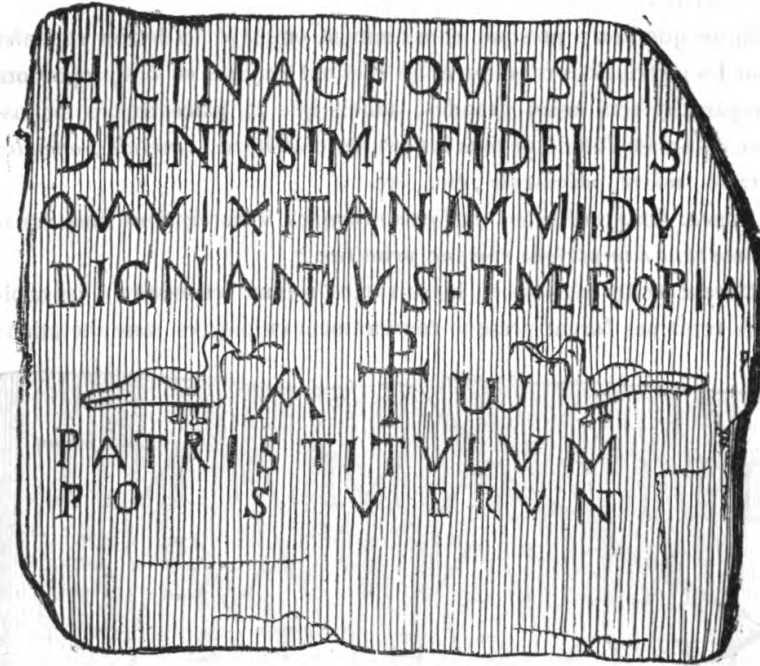 HIC IN PACE QVIESCI
DIGNISSIMA FIDELES
QVA VIXIT AN I M VIII D V
DIGNANTIVS ET MEROPIA
A ⳨ ω
PATRIS TITVLVM
POSVERVN